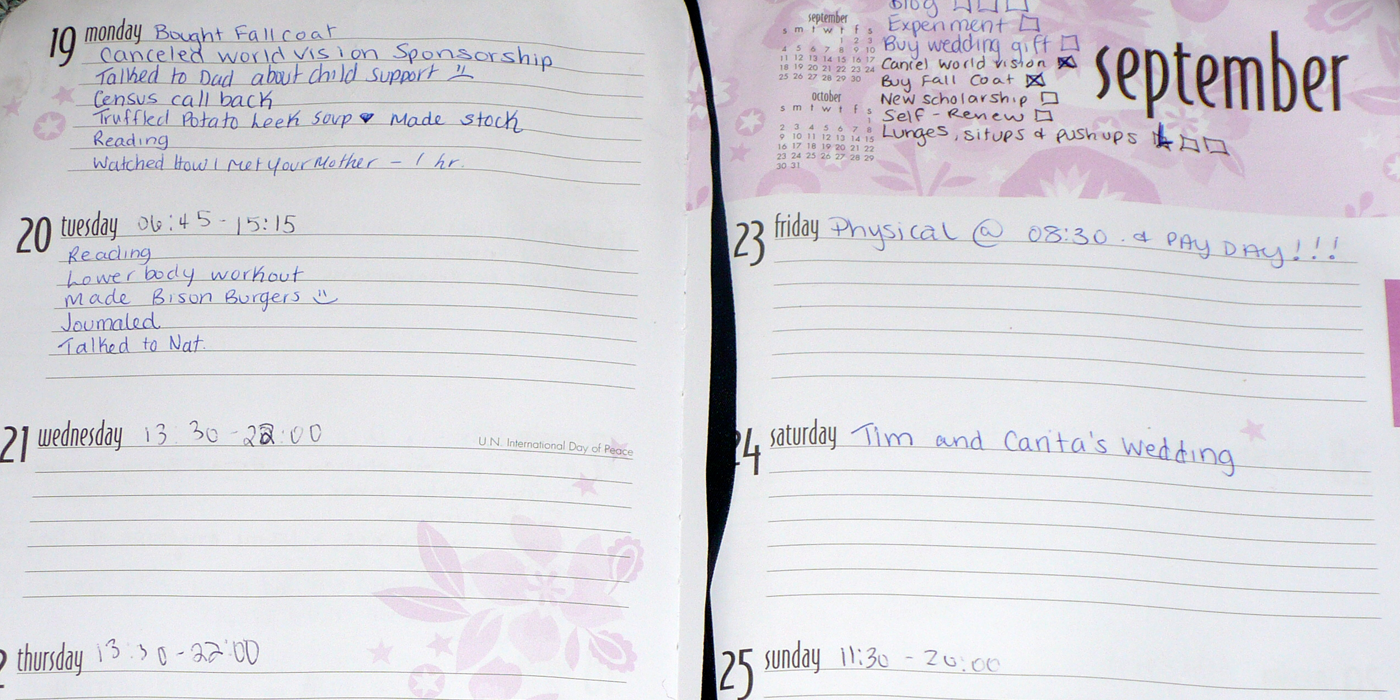 19 monday Bought Fall coat
Canceled world vision Sponsorship
Talked to Dad about child support
Census call back
Truffled Potato Leek soup ♥ Made stock
Reading
Watched How I Met Your Mother - 1 hr.
20 tuesday 06:45 - 15:15
Reading
Lower body workout
Made Bison Burgers
Journaled
Talked to Nat.
21 wednesday 13 30 - 22:00
U.N. International Day of Peace
thursday 13:30 - 22:00
Blog
Experiment
Buy wedding gift
Cancel world vision
Buy Fall Coat
New scholarship
Self-Renew
Lunges, situps & pushups
september
september
s m t w t f s
1 2 3
4 5 6 7 8 9 10
11 12 13 14 15 16 17
18 19 20 21 22 23 24
25 26 27 28 29 30
october
s m t w t f s
1
2 3 4 5 6 7 8
9 10 11 12 13 14 15
16 17 18 19 20 21 22
23 24 25 26 27 28 29
30 31
23 friday Physical @ 08:30 & PAY DAY!!!
24 saturday Tim and Carita's Wedding
25 sunday 11:30 - 20:00